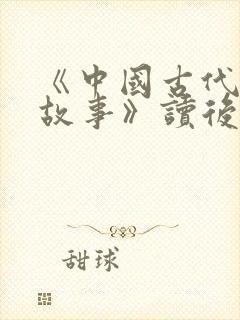 《中國古代
故事》讀後
甜球